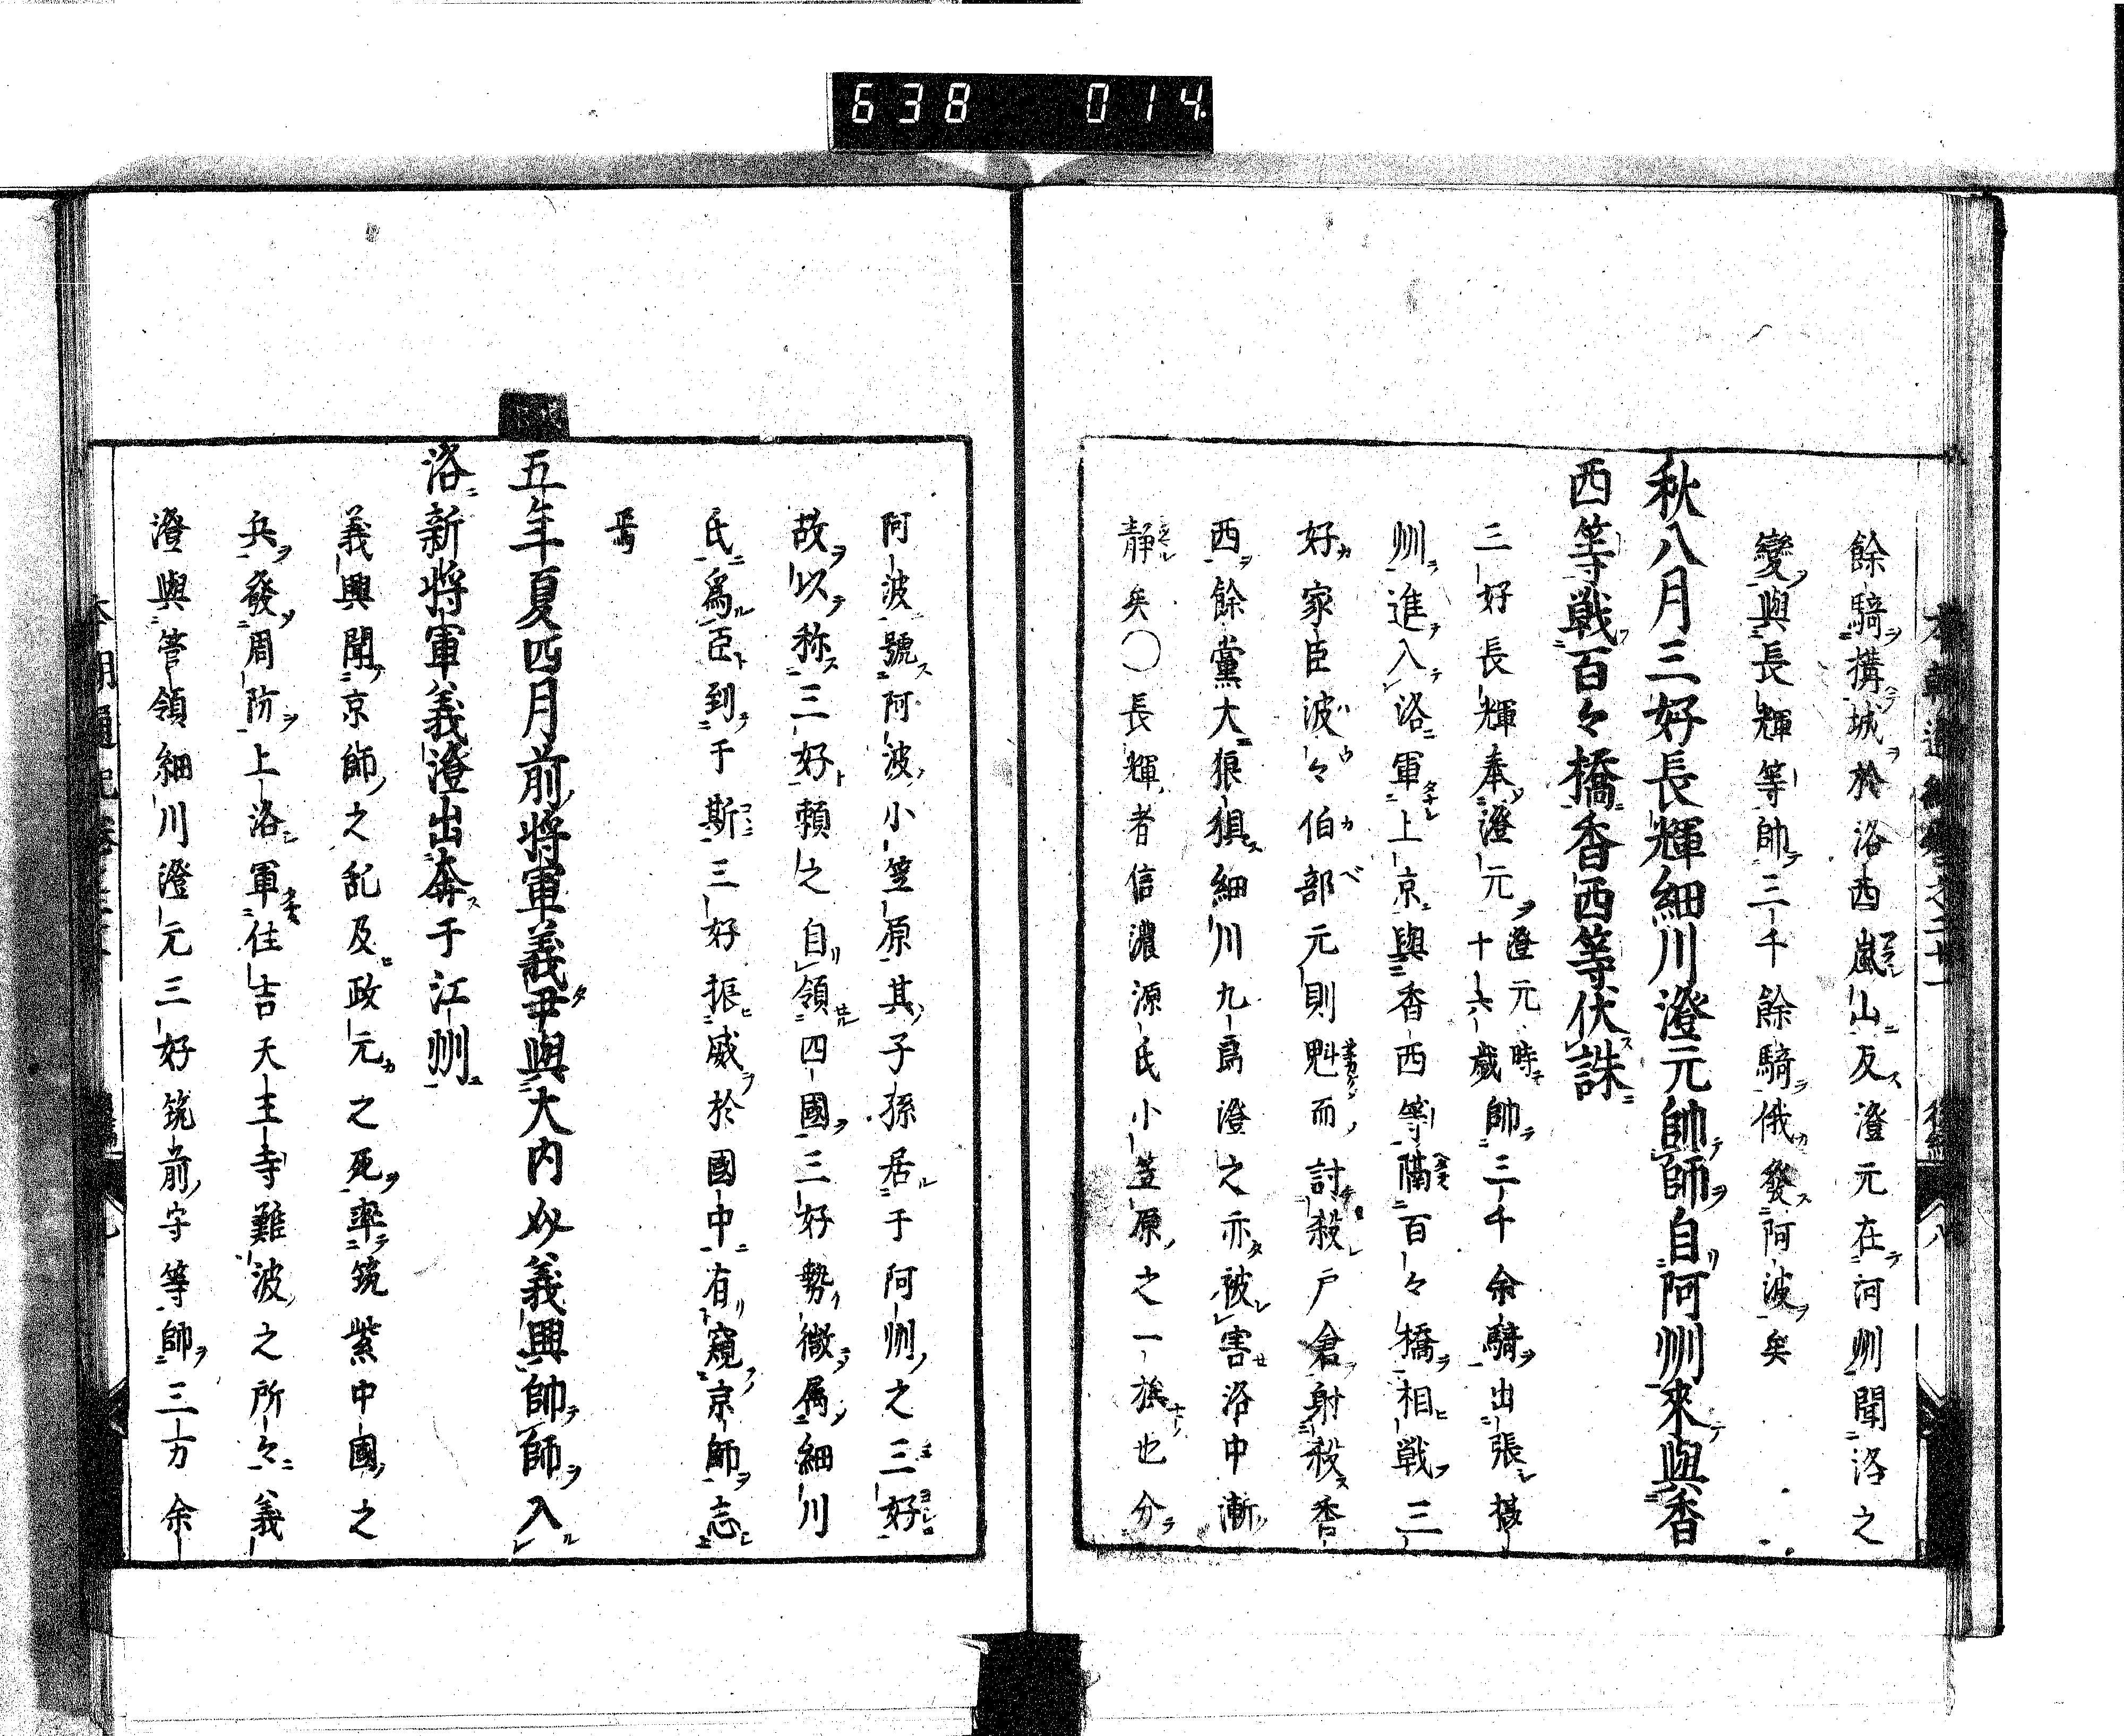 638 014
餘騎搆城於洛西嵐山反澄元在河州聞洛之
變與長輝等帥三千餘騎俄發阿波矣
秋八月三好長輝細川澄元帥師自阿州來與香
西等戦百々橋香西等伏誅
三好長輝奉澄元澄元時十六歳帥三千余騎出張攝
州進入洛軍上京與香西等隔百々橋相戦三
好家臣波々伯部元則魁而討殺戸倉射殺香
西餘黨大狼狽細川九郎澄之亦被害洛中漸
静矣〇長輝者信濃源氏小笠原之一族也分
阿波號阿波小笠原其子孫居于阿州之三好
故以称三好頼之自領四國三好勢微属細川
氏爲臣到于斯三好振威於國中有窺京師志
焉
五年夏四月前將軍義尹與大内義興帥師入
洛新將軍義澄出奔于江州
義興聞京師之乱及政元之死率筑紫中國之
兵發周防上洛軍住吉天王寺難波之所々義
澄與管領細川澄元三好筑前守等帥三万余